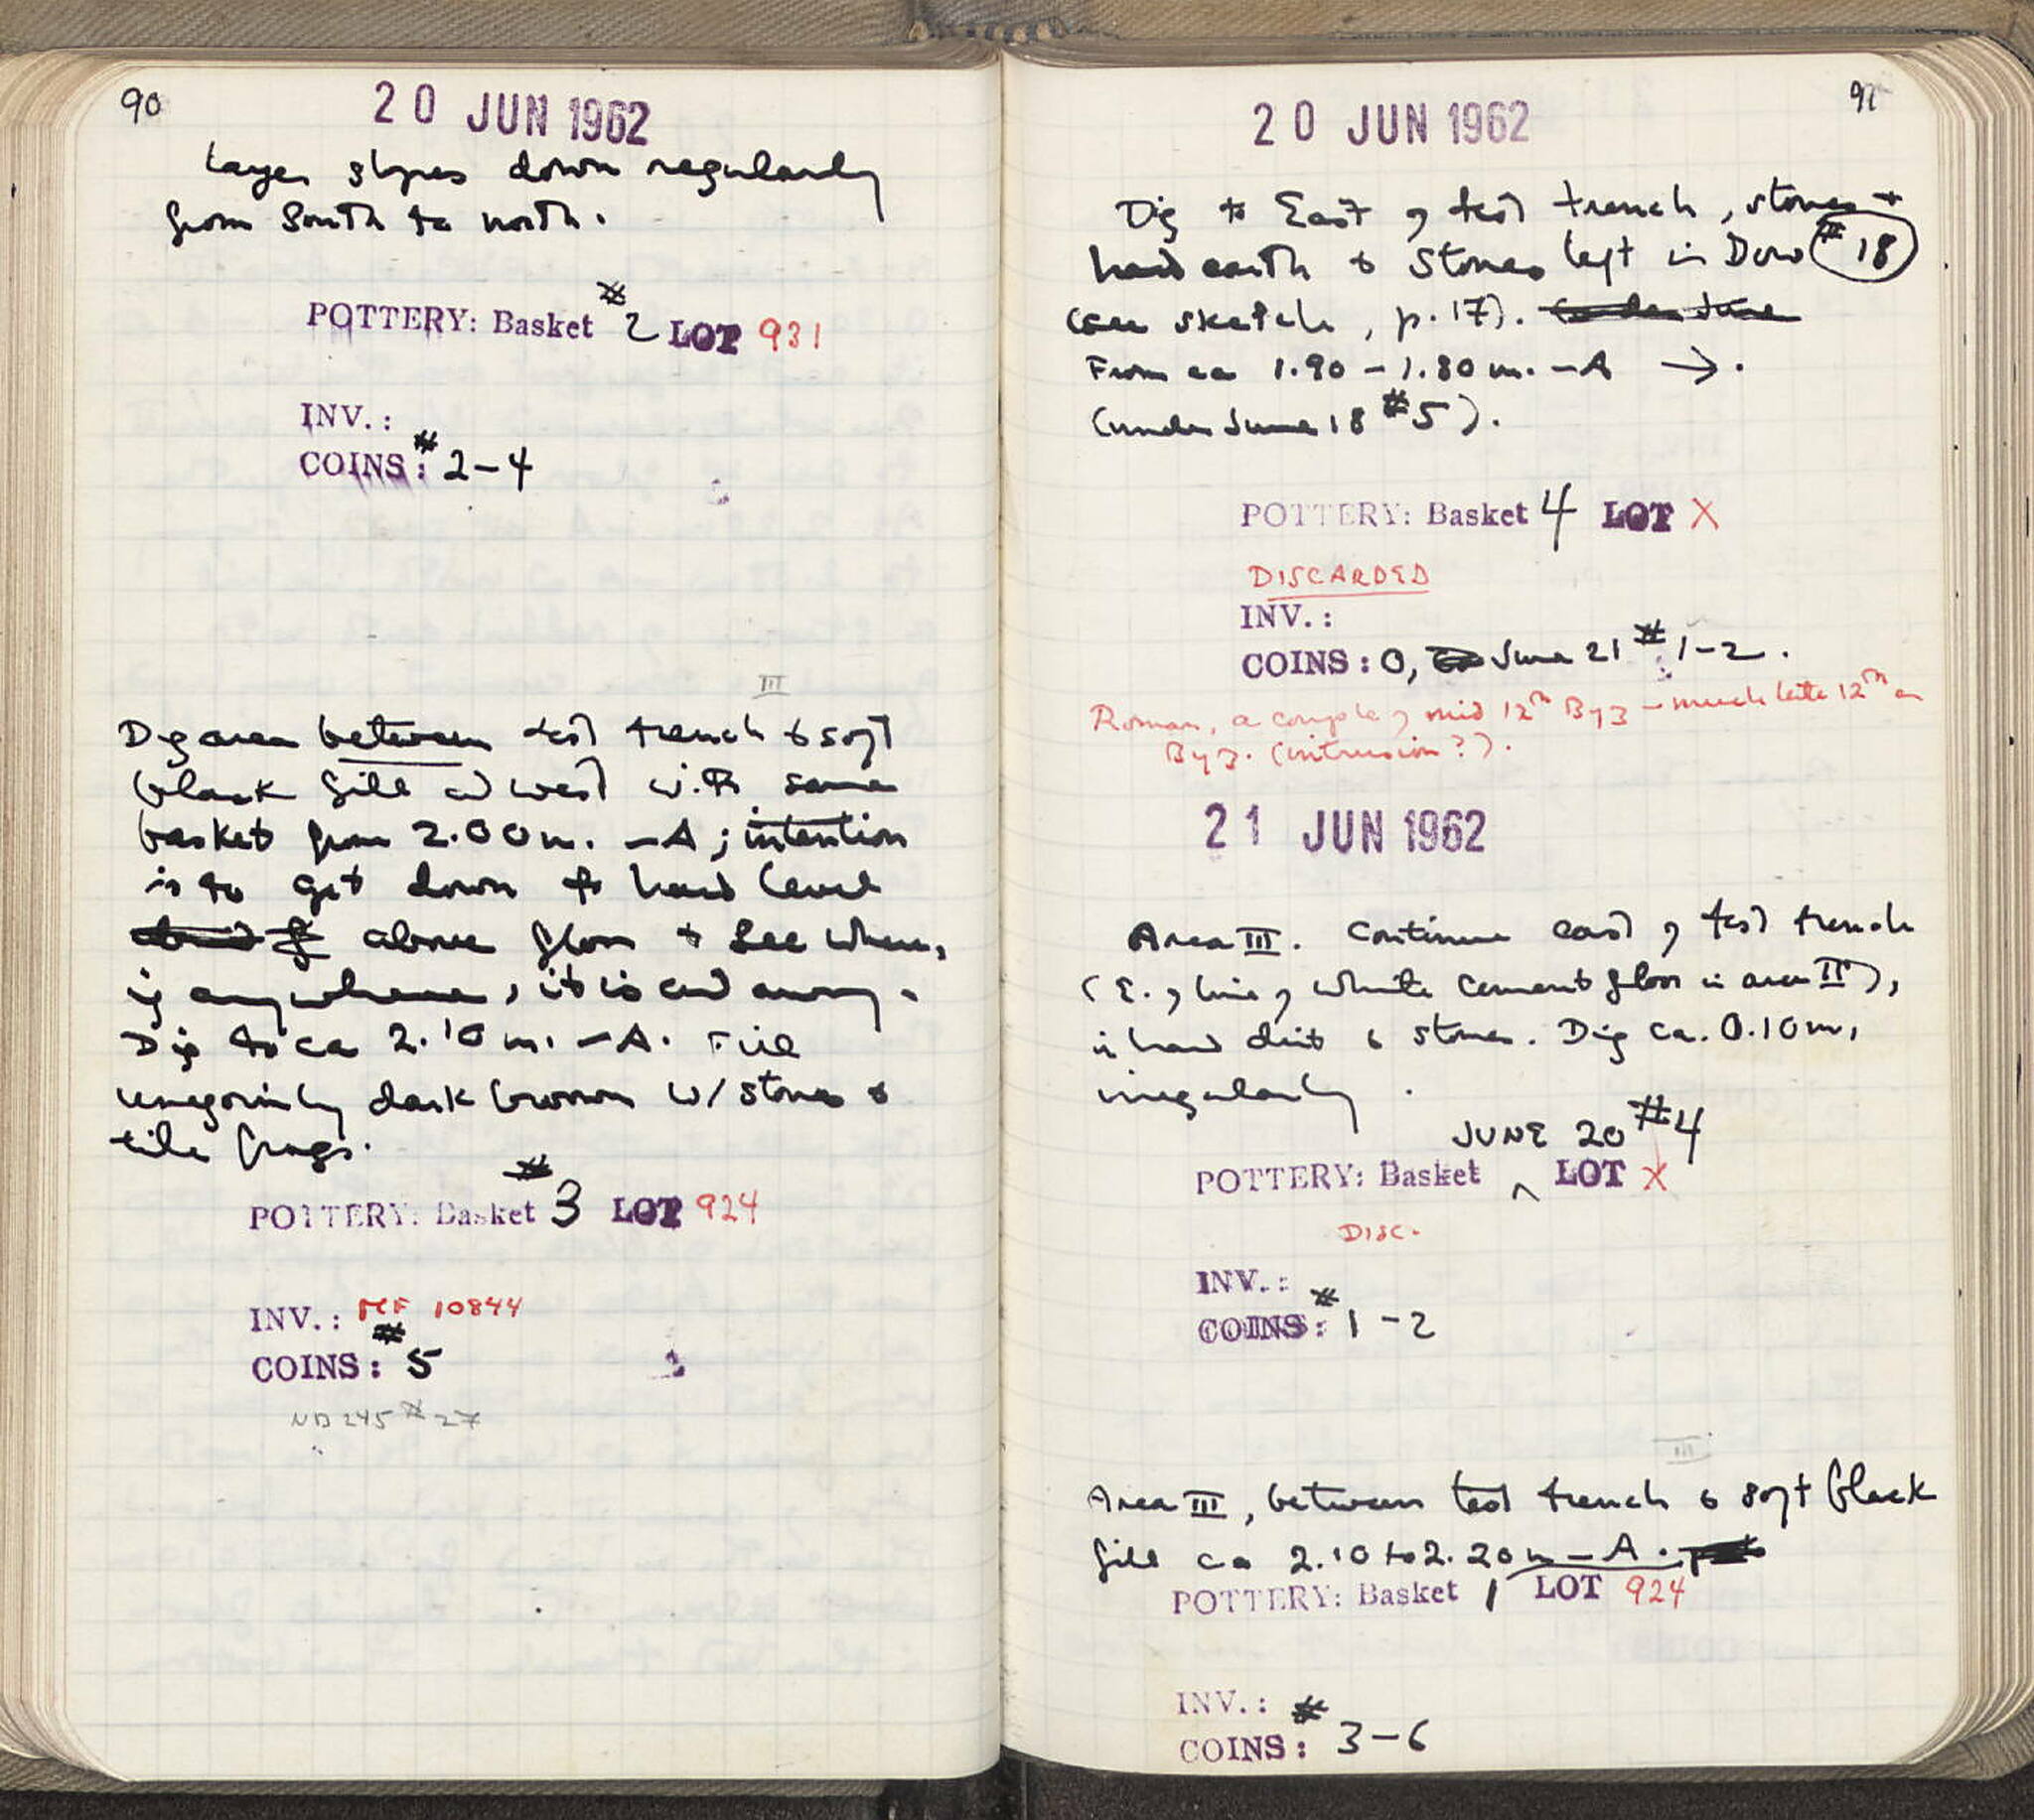 90
20 JUN 1962
Layer slopes down regularly
from South to north.
POTTERY: Basket #2 LOT 931
INV.:
COINS: #2-4
III
Dig area between test trench & soft
black fill at west with same
basket from 2.00m. -A; intention
is to get down to hard level
above floor & see where,
if anywhere, it is cut away.
Dig to ca 2.10 m. -A. Fill
uniformly dark brown w/ stones &
tile frags.
POTTERY: Basket #3 LOT 924
INV.: MF 10844
COINS: #5
NB 245 #27
91
20 JUN 1962
Dig to East of test trench, stones +
hard earth & stones left in #18
(see sketch, p. 17).
From ca 1.90 - 1.80 m. -A →.
(under June 18 #5).
POTTERY: Basket 4 LOT X
DISCARDED
INV.:
COINS: 0, June 21 #1-2.
Roman, a couple of mid 12th Byz - much late 12th
Byz. (intrusion?).
21 JUN 1962
Area III. Continue east of test trench
(E. of line of white cement floor in area II),
in hard dirt & stones. Dig ca. 0.10m,
irregularly.
JUNE 20 #4
POTTERY: Basket ^ LOT X
DISC.
INV.:
COINS: #1-2
III
Area III, between test trench & soft black
fill ca 2.10 to 2.20 m - A.
POTTERY: Basket 1 LOT 924
INV.:
COINS: #3-6